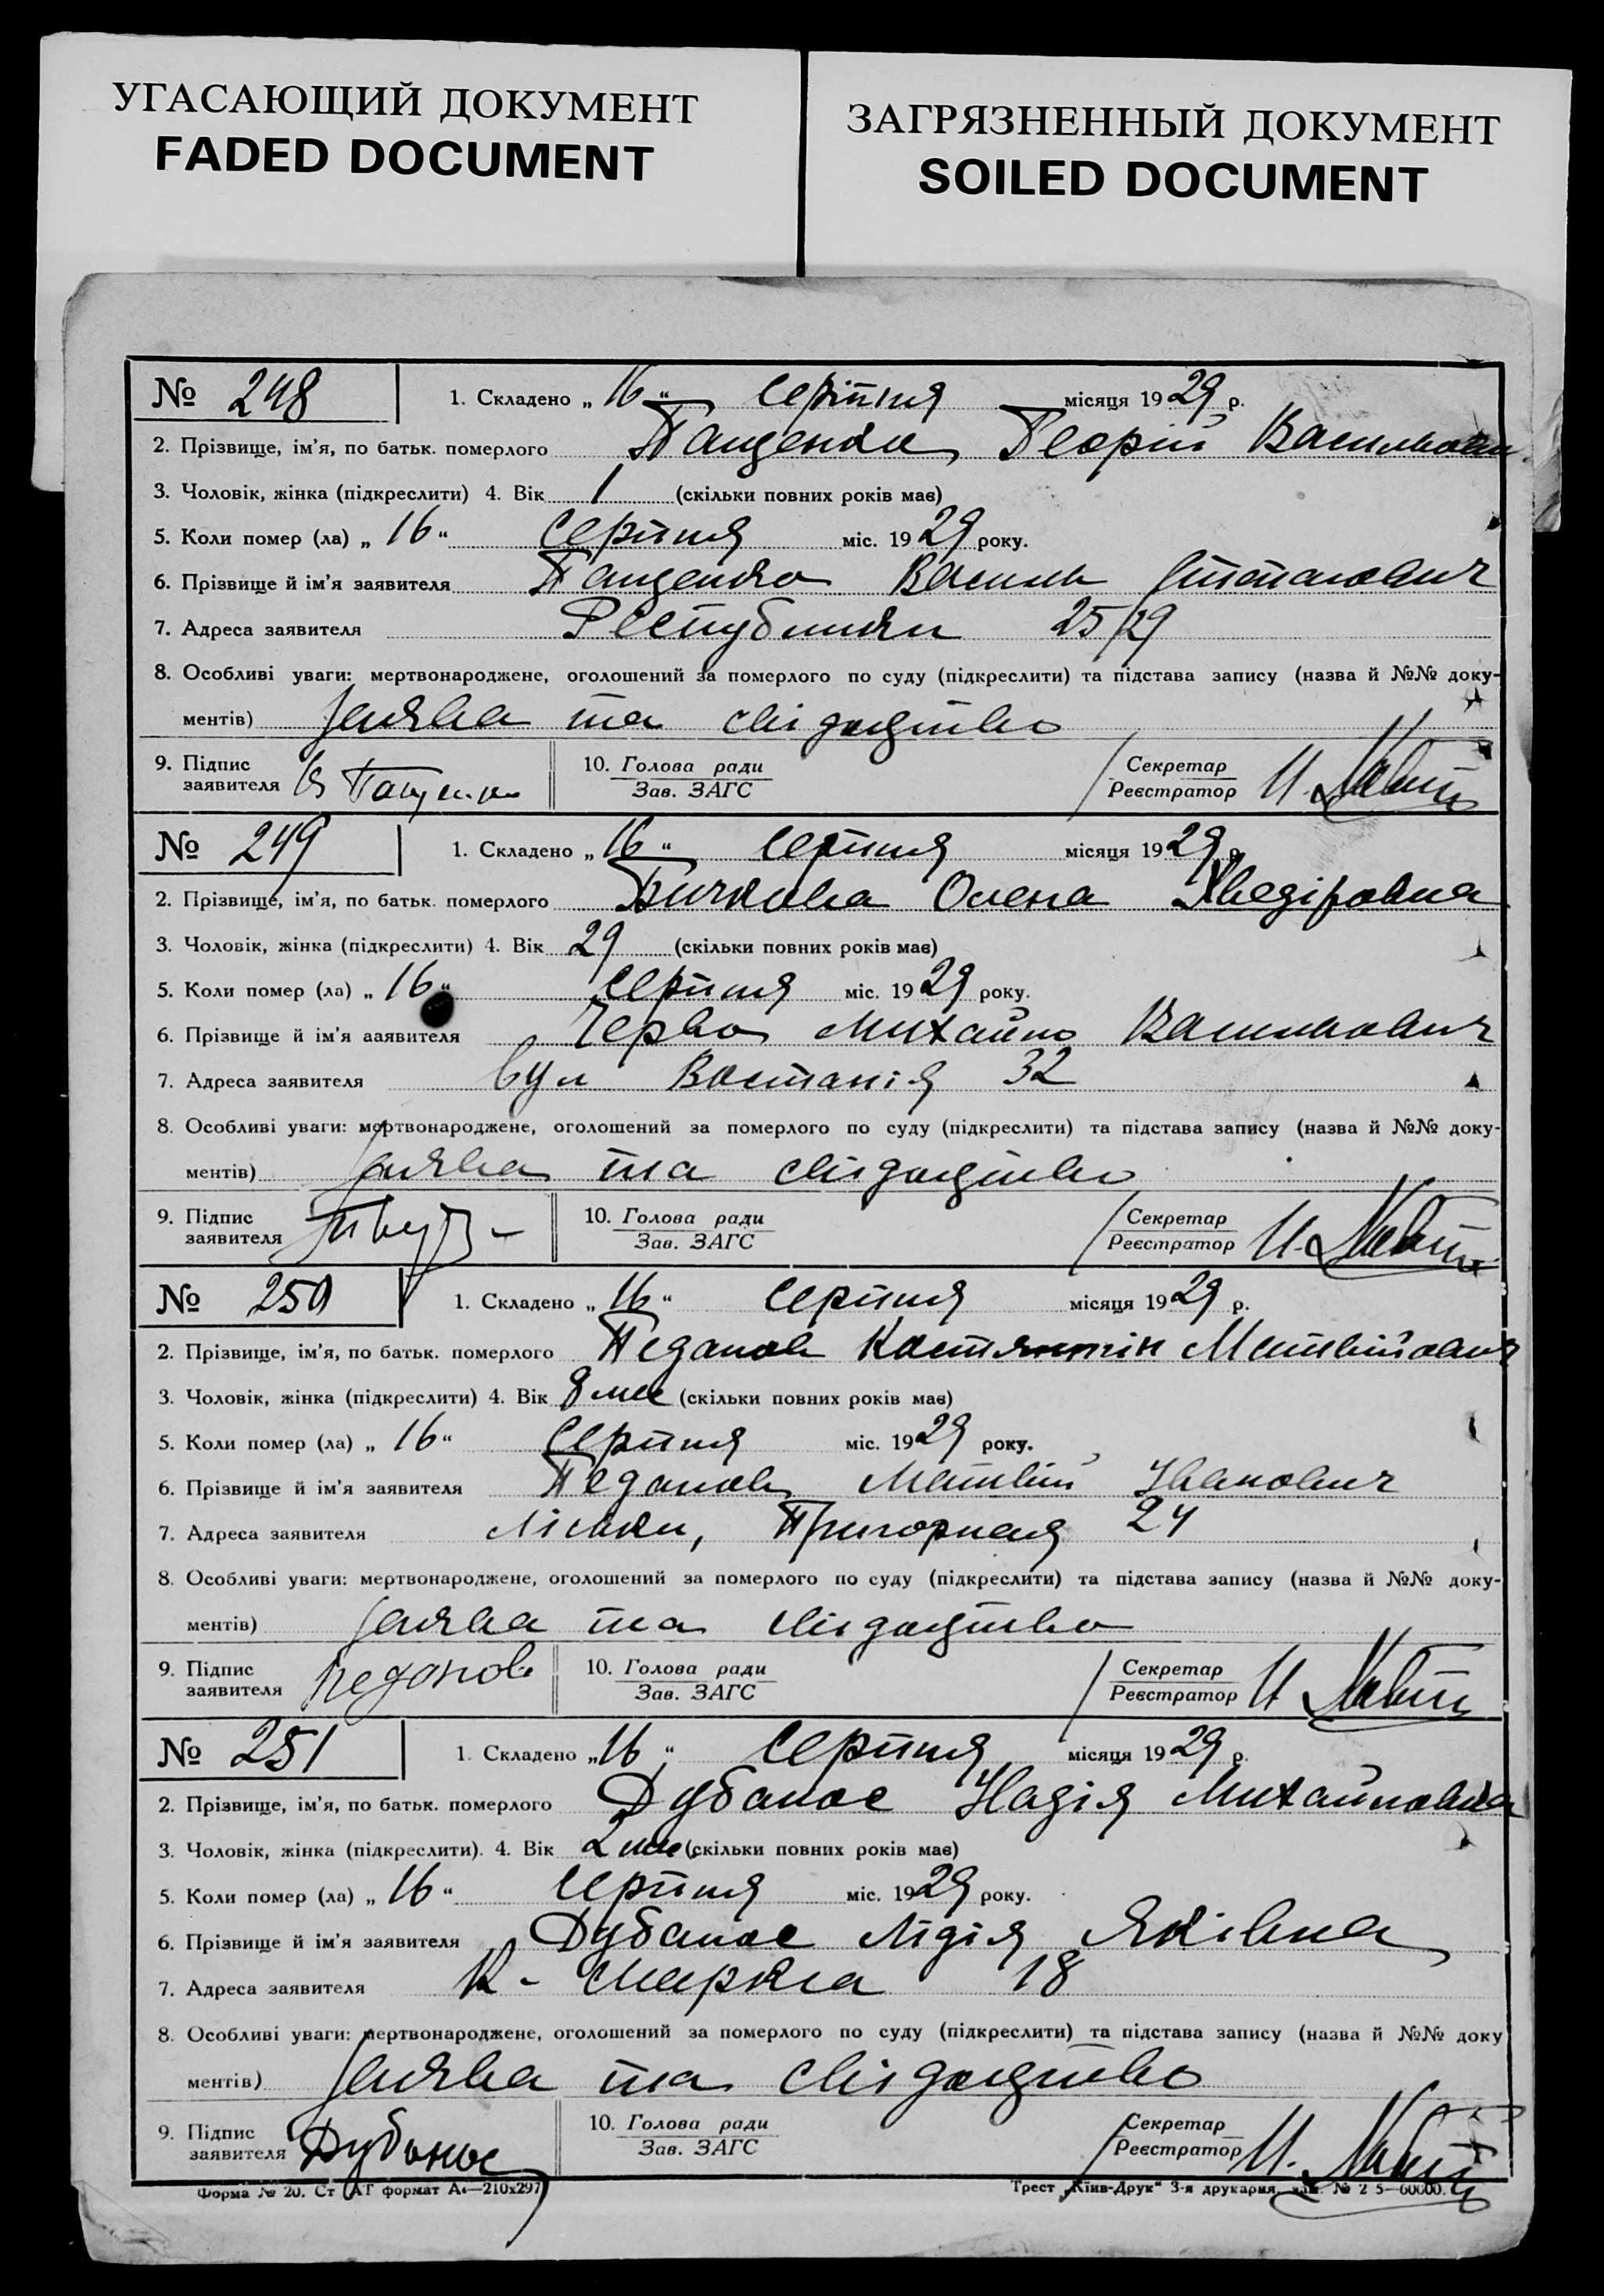 УГАСАЮЩИЙ ДОКУМЕНТ
FADED DOCUMENT
ЗАГРЯЗНЕННЫЙ ДОКУМЕНТ
SOILED DOCUMENT
№ 248 1. Складено „ 16 “ серпня місяця 1929 р.
2. Прізвище, ім'я, по батьк. померлого Пащенко Георгій Васильович
3. Чоловік, жінка (підкреслити) 4. Вік 1 (скільки повних років має)
5. Коли помер (ла) „ 16 “ серпня міс. 1929 року.
6. Прізвище й ім'я заявителя Пащенко Василь Степанович
7. Адреса заявителя Республики 25/29
8. Особливі уваги: мертвонароджене, оголошений за померлого по суду (підкреслити) та підстава запису (назва й №№ доку-
ментів) заява та свідоцтво
9. Підпис заявителя 10. Голова ради Секретар
Зав. ЗАГС Реєстратор
№ 249 1. Складено „ 16 “ серпня місяця 1929 р.
2. Прізвище, ім'я, по батьк. померлого Бичкова Олена Хведіровна
3. Чоловік, жінка (підкреслити) 4. Вік 29 (скільки повних років має)
5. Коли помер (ла) „ 16 “ серпня міс. 1929 року.
6. Прізвище й ім'я заявителя Михайло Васильович
7. Адреса заявителя вул Востанія 32
8. Особливі уваги: мертвонароджене, оголошений за померлого по суду (підкреслити) та підстава запису (назва й №№ доку-
ментів) заява та свідоцтво
9. Підпис заявителя 10. Голова ради Секретар
Зав. ЗАГС Реєстратор
№ 250 1. Складено „ 16 “ серпня місяця 1929 р.
2. Прізвище, ім'я, по батьк. померлого Педанов Костянтін Матвійович
3. Чоловік, жінка (підкреслити) 4. Вік 8 міс (скільки повних років має)
5. Коли помер (ла) „ 16 “ серпня міс. 1929 року.
6. Прізвище й ім'я заявителя Педанов Матвій Іванович
7. Адреса заявителя Ліски, Пригорная 24
8. Особливі уваги: мертвонароджене, оголошений за померлого по суду (підкреслити) та підстава запису (назва й №№ доку-
ментів) заява та свідоцтво
9. Підпис заявителя Педанов 10. Голова ради Секретар
Зав. ЗАГС Реєстратор
№ 251 1. Складено „ 16 “ серпня місяця 1929 р.
2. Прізвище, ім'я, по батьк. померлого Дубонос Надія Михайловна
3. Чоловік, жінка (підкреслити). 4. Вік 2 міс (скільки повних років має)
5. Коли помер (ла) „ 16 “ серпня міс. 1929 року.
6. Прізвище й ім'я заявителя Дубонос Лідія Яківна
7. Адреса заявителя К-Маркса 18
8. Особливі уваги: мертвонароджене, оголошений за померлого по суду (підкреслити) та підстава запису (назва й №№ доку
ментів) заява та свідоцтво
9. Підпис заявителя Дубонос 10. Голова ради Секретар
Зав. ЗАГС Реєстратор
Форма № 20. Ст формат А4—210x297 Трест „Київ-Друк“ 3-я друкарня